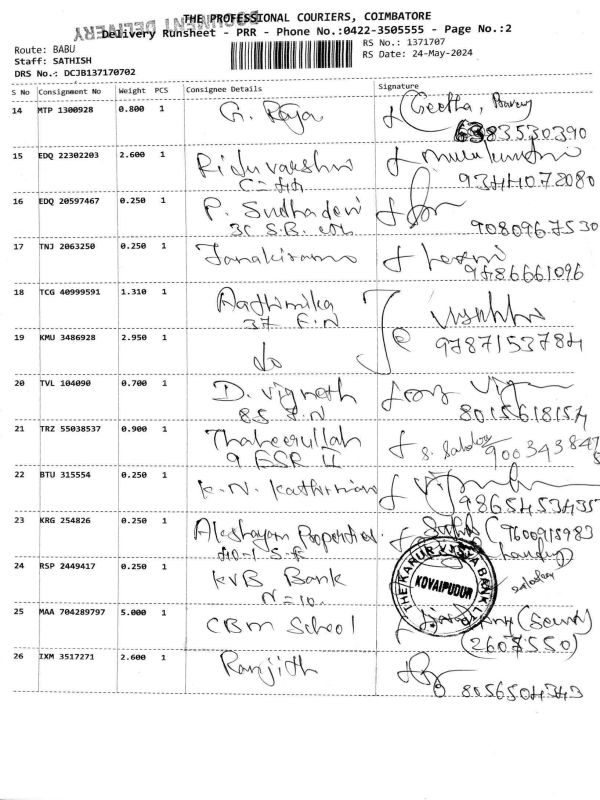 THE PROFESSIONAL COURIERS, COIMBATORE
DOCUMENT DELIVERY
Delivery Runsheet - PRR - Phone No.:0422-3505555 - Page No.:2
Route: BABU
Staff: SATHISH
DRS No.: DCJB137170702
RS No.: 1371707
RS Date: 24-May-2024
S No Consignment No Weight PCS Consignee Details Signature
14 MTP 1300928 0.800 1 G. Raja Geetha,
6383530390
15 EDQ 22302203 2.600 1
9344072080
16 EDQ 20597467 0.250 1 P. Sudhadevi
3C S.B. 9080967530
17 TNJ 2063250 0.250 1 Janakiraman
9486661096
18 TCG 40999591 1.310 1 Aathimika
37 F.N
19 KMU 3486928 2.950 1 do 9787153784
20 TVL 104090 0.700 1 D. Vignesh
85 F.N 8015618154
21 TRZ 55038537 0.900 1 Thaheerullah
9 ESR 900343847
22 BTU 315554 0.250 1 K.N. Kathirvan
9865453435
23 KRG 254826 0.250 1 Akshayam Properties 9600915983
24 RSP 2449417 0.250 1 KVB Bank
N=10.
THE KARUR VYSYA BANK L
KOVAIPUDUR
25 MAA 704289797 5.000 1 CBM School
(2607550)
26 IXM 3517271 2.600 1 Ranjith
8056504343